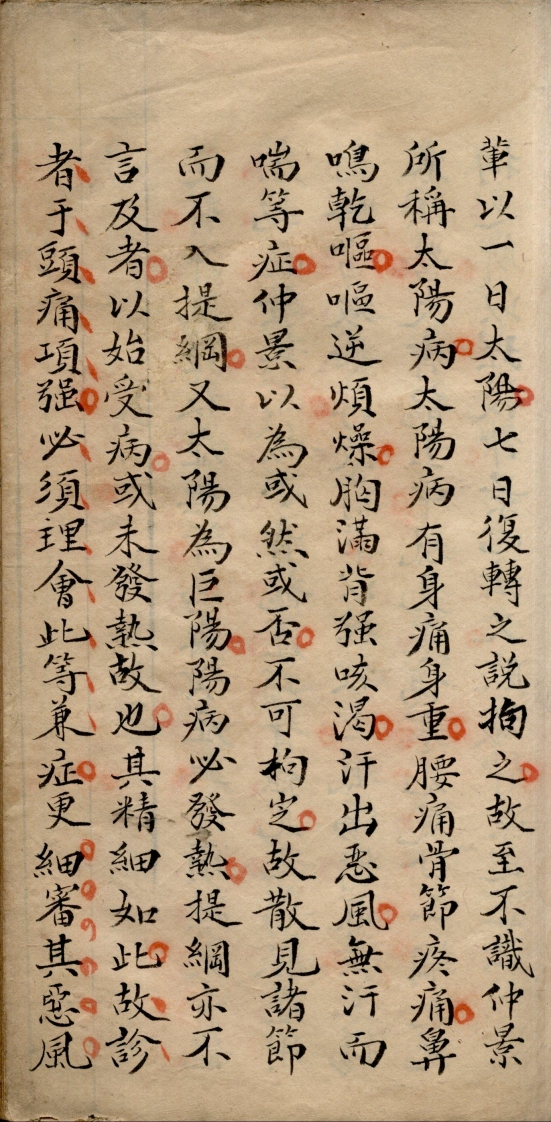 輩以一日太陽七日復轉之說拘之故至不識仲景
所稱太陽病太陽病有身痛身重腰痛骨節疼痛鼻
鳴乾嘔嘔逆煩燥胸滿背强咳渴汗出惡風無汗而
喘等症仲景以為或然或否不可拘定故散見諸節
而不入提綱又太陽為巨陽陽病必發熱提綱亦不
言及者以始受病或未發熱故也其精細如此故診
者于頭痛項强必須理會此等兼症更細審其惡風